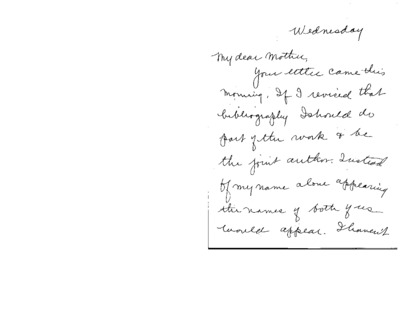 Wednesday
My dear Mother,
Your letter came this
morning. If I revised that
bibliography I should do
part of the work & be
the joint author. Instead
of my name alone appearing
the names of both of us
would appear. I haven't